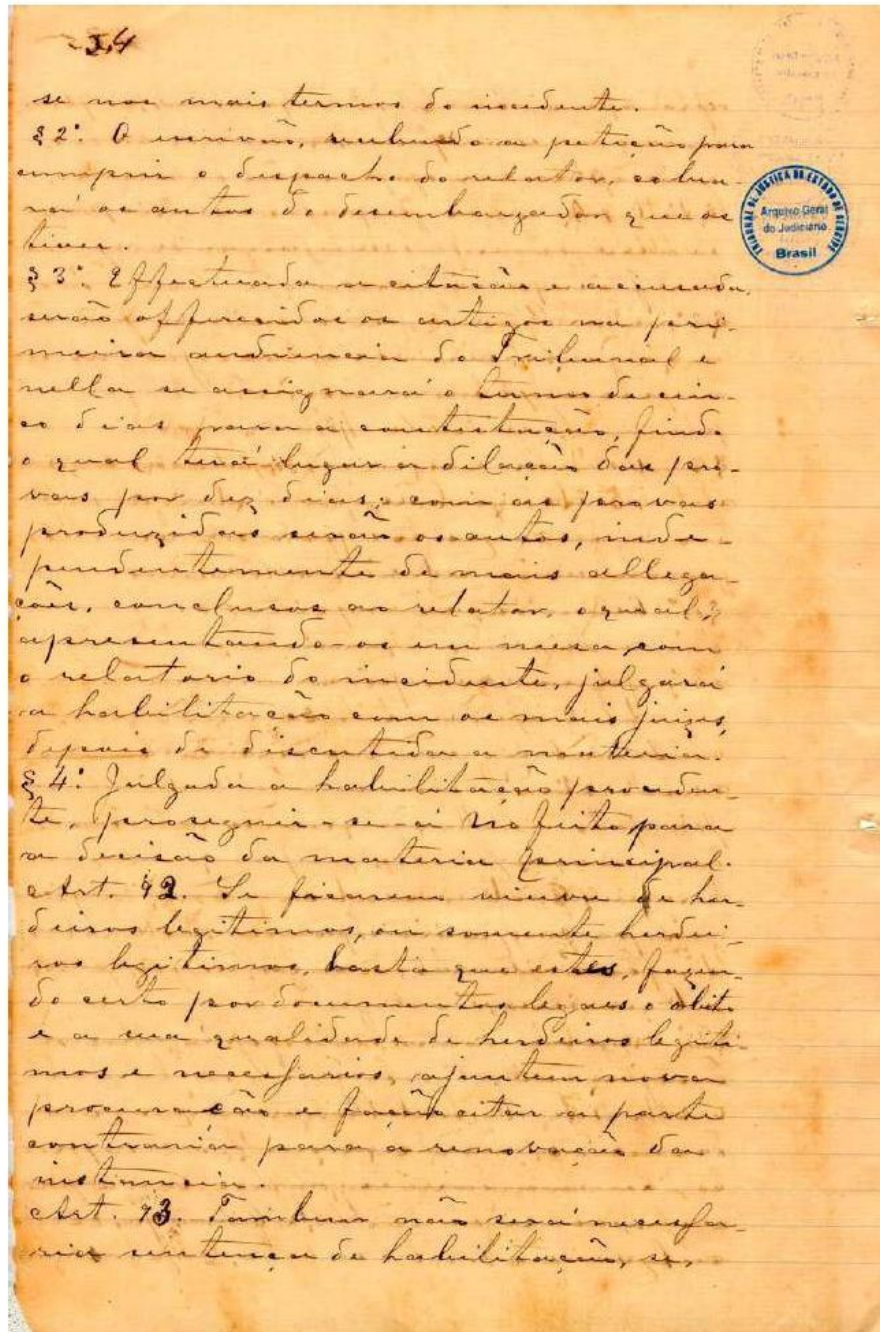 54
se nos mais termos do incidente.
§ 2º. O escrivão, recebendo a petição para
cumprir o despacho do relator, cobra-
rá os autos do desembargador que os
tiver.
§ 3º. Effectuada a citação e accusada,
serão offerecidos os artigos na pri-
meira audiencia do Tribunal e
nella se assignará o termo de cin-
co dias para a contestação, findo
o qual terá lugar a dilação das pro-
vas por dez dias, e com as provas
produzidas serão os autos, inde-
pendentemente de mais allega-
ções, conclusos ao relator, o qual,
apresentando-os em mesa, com
o relatorio do incidente, julgará
a habilitação com os mais juizes,
depois de discutida a materia.
§ 4º. Julgada a habilitação proceden-
te, proseguir-se-á no feito para
a decisão da materia principal.
Art. 92. Se ficarem viuva de her-
deiros legitimos, ou somente herdei-
ros legitimos, basta que estes, fazen-
do certo por documentos legaes o obito
e a sua qualidade de herdeiros legiti-
mos e necessarios, ajuntem nova
procuração e fação citar a parte
contraria para a renovação da
instancia.
Art. 93. Tambem não será necessa-
ria sentença de habilitação, se,
TRIBUNAL DE JUSTIÇA DO ESTADO DE SERGIPE
Arquivo Geral
do Judiciário
Brasil